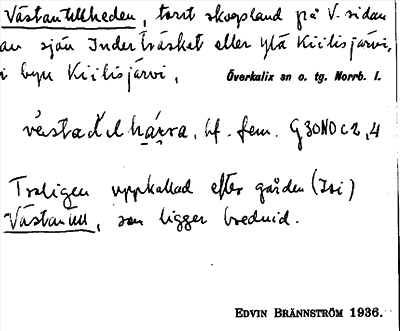 Västantillheden, torrt skogsland på V. sidan
av sjön Inderträsket eller Ytä Kiilisjärvi,
i byn Kiilisjärvi, Överkalix sn o. tg. Norrb. l.
bf. fem. G30NO c2,4
Troligen uppkallad efter gården (Isi)
Västantill, som ligger bredvid.
EDVIN BRÄNNSTRÖM 1936.